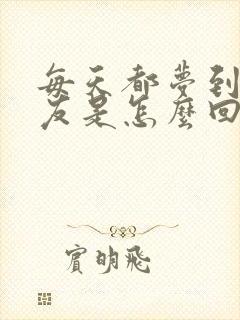 每天都夢到
友是怎麼回
賓明飛